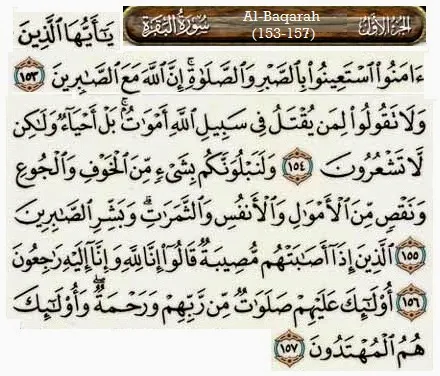 الجزء الأول
Al-Baqarah
(153-157)
سورة البقرة
يَٰٓأَيُّهَا ٱلَّذِينَ
ءَامَنُوا۟ ٱسْتَعِينُوا۟ بِٱلصَّبْرِ وَٱلصَّلَوٰةِ ۚ إِنَّ ٱللَّهَ مَعَ ٱلصَّٰبِرِينَ ١٥٣
وَلَا تَقُولُوا۟ لِمَن يُقْتَلُ فِى سَبِيلِ ٱللَّهِ أَمْوَٰتٌۢ ۚ بَلْ أَحْيَآءٌ وَلَٰكِن
لَّا تَشْعُرُونَ ١٥٤ وَلَنَبْلُوَنَّكُم بِشَىْءٍ مِّنَ ٱلْخَوْفِ وَٱلْجُوعِ
وَنَقْصٍ مِّنَ ٱلْأَمْوَٰلِ وَٱلْأَنفُسِ وَٱلثَّمَرَٰتِ ۗ وَبَشِّرِ ٱلصَّٰبِرِينَ
١٥٥ ٱلَّذِينَ إِذَآ أَصَٰبَتْهُم مُّصِيبَةٌ قَالُوٓا۟ إِنَّا لِلَّهِ وَإِنَّآ إِلَيْهِ رَٰجِعُونَ
١٥٦ أُو۟لَٰٓئِكَ عَلَيْهِمْ صَلَوَٰتٌ مِّن رَّبِّهِمْ وَرَحْمَةٌ ۖ وَأُو۟لَٰٓئِكَ
هُمُ ٱلْمُهْتَدُونَ ١٥٧